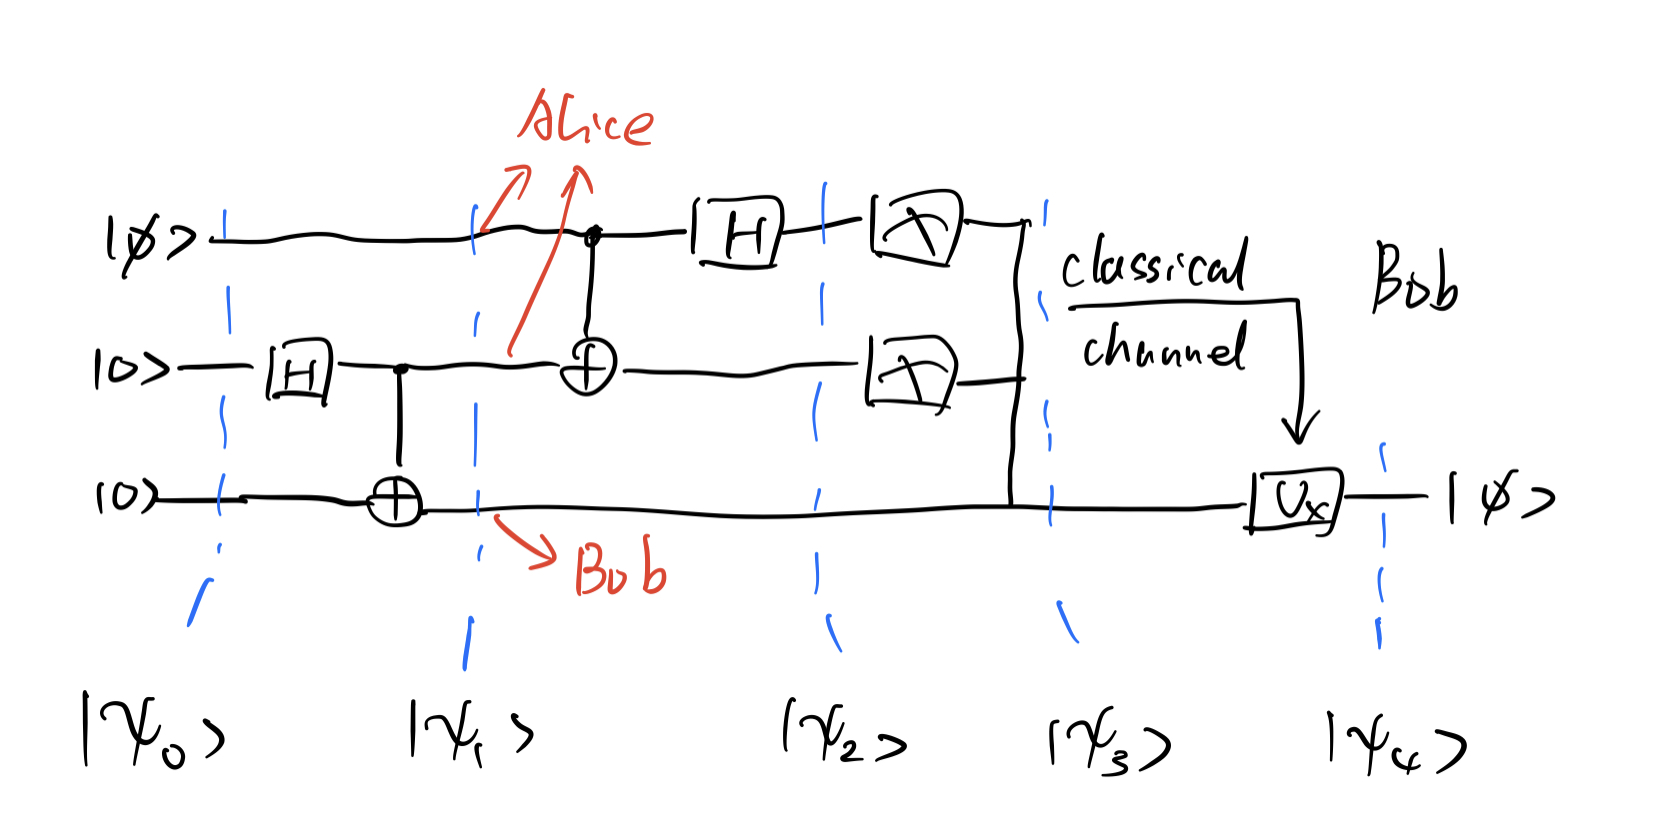 Alice
|φ> H
classical
Bob
channel
|0> H
|0> Uₓ |φ>
Bob
|ψ₀> |ψ₁> |ψ₂> |ψ₃> |ψ₄>